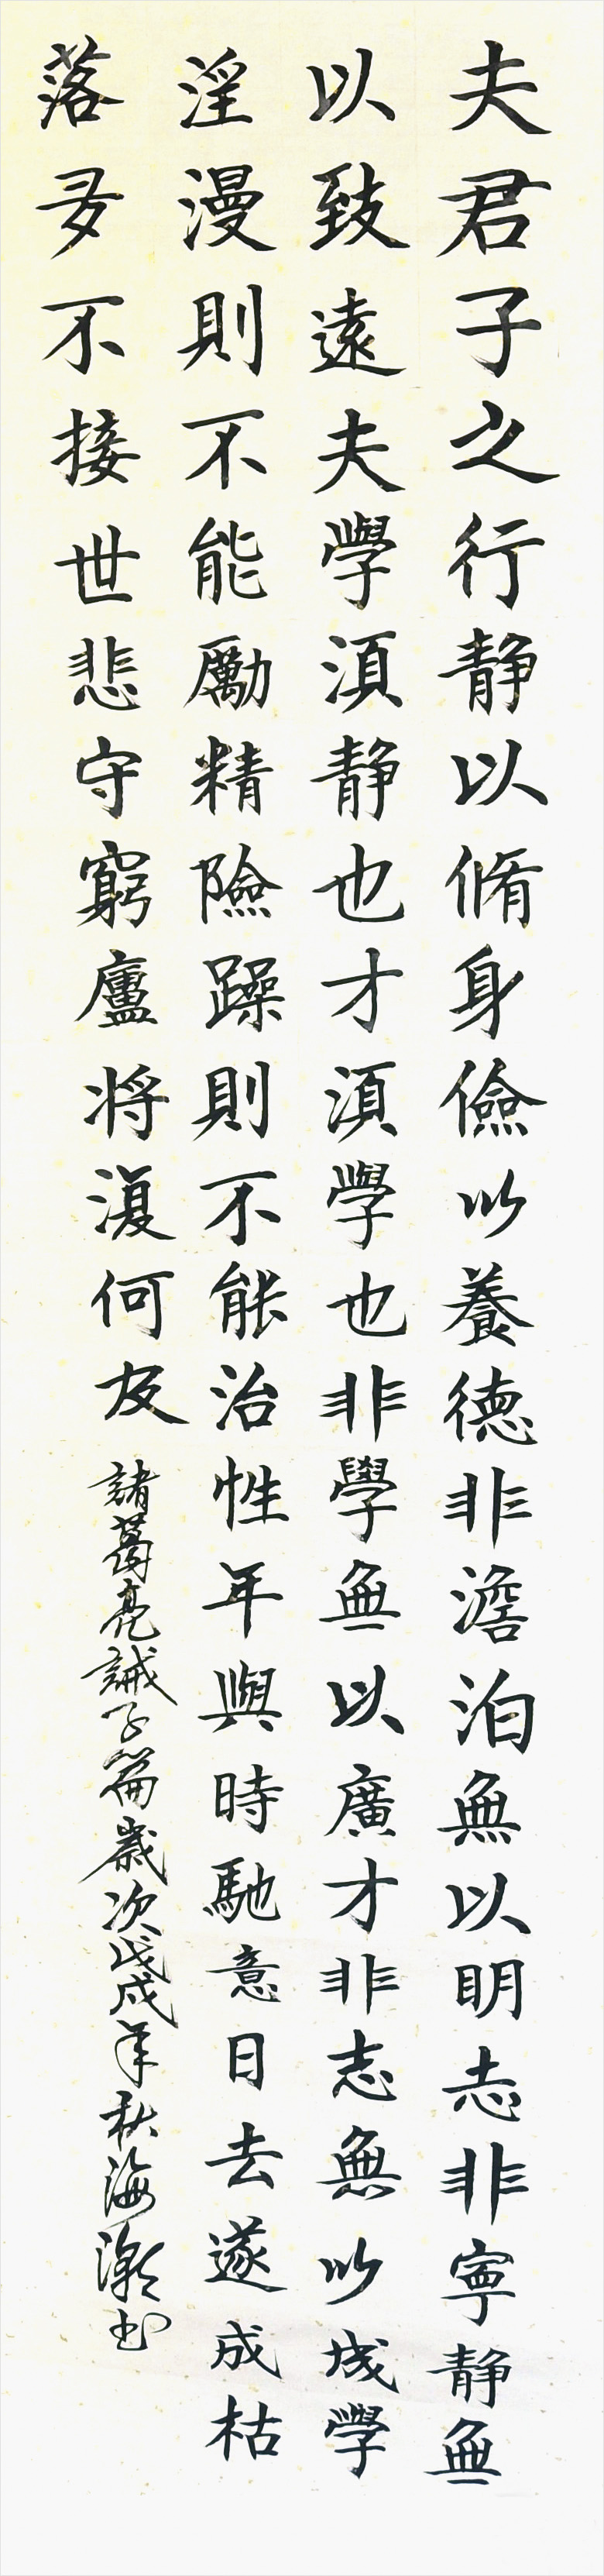 夫君子之行静以脩身儉以養德非澹泊無以明志非寧静無
以致遠夫學須静也才須學也非學無以廣才非志無以成學
淫漫則不能勵精險躁則不能治性年與時馳意日去遂成枯
落多不接世悲守窮廬将復何及
諸葛亮誡子篇歲次戊戌年秋海潮书